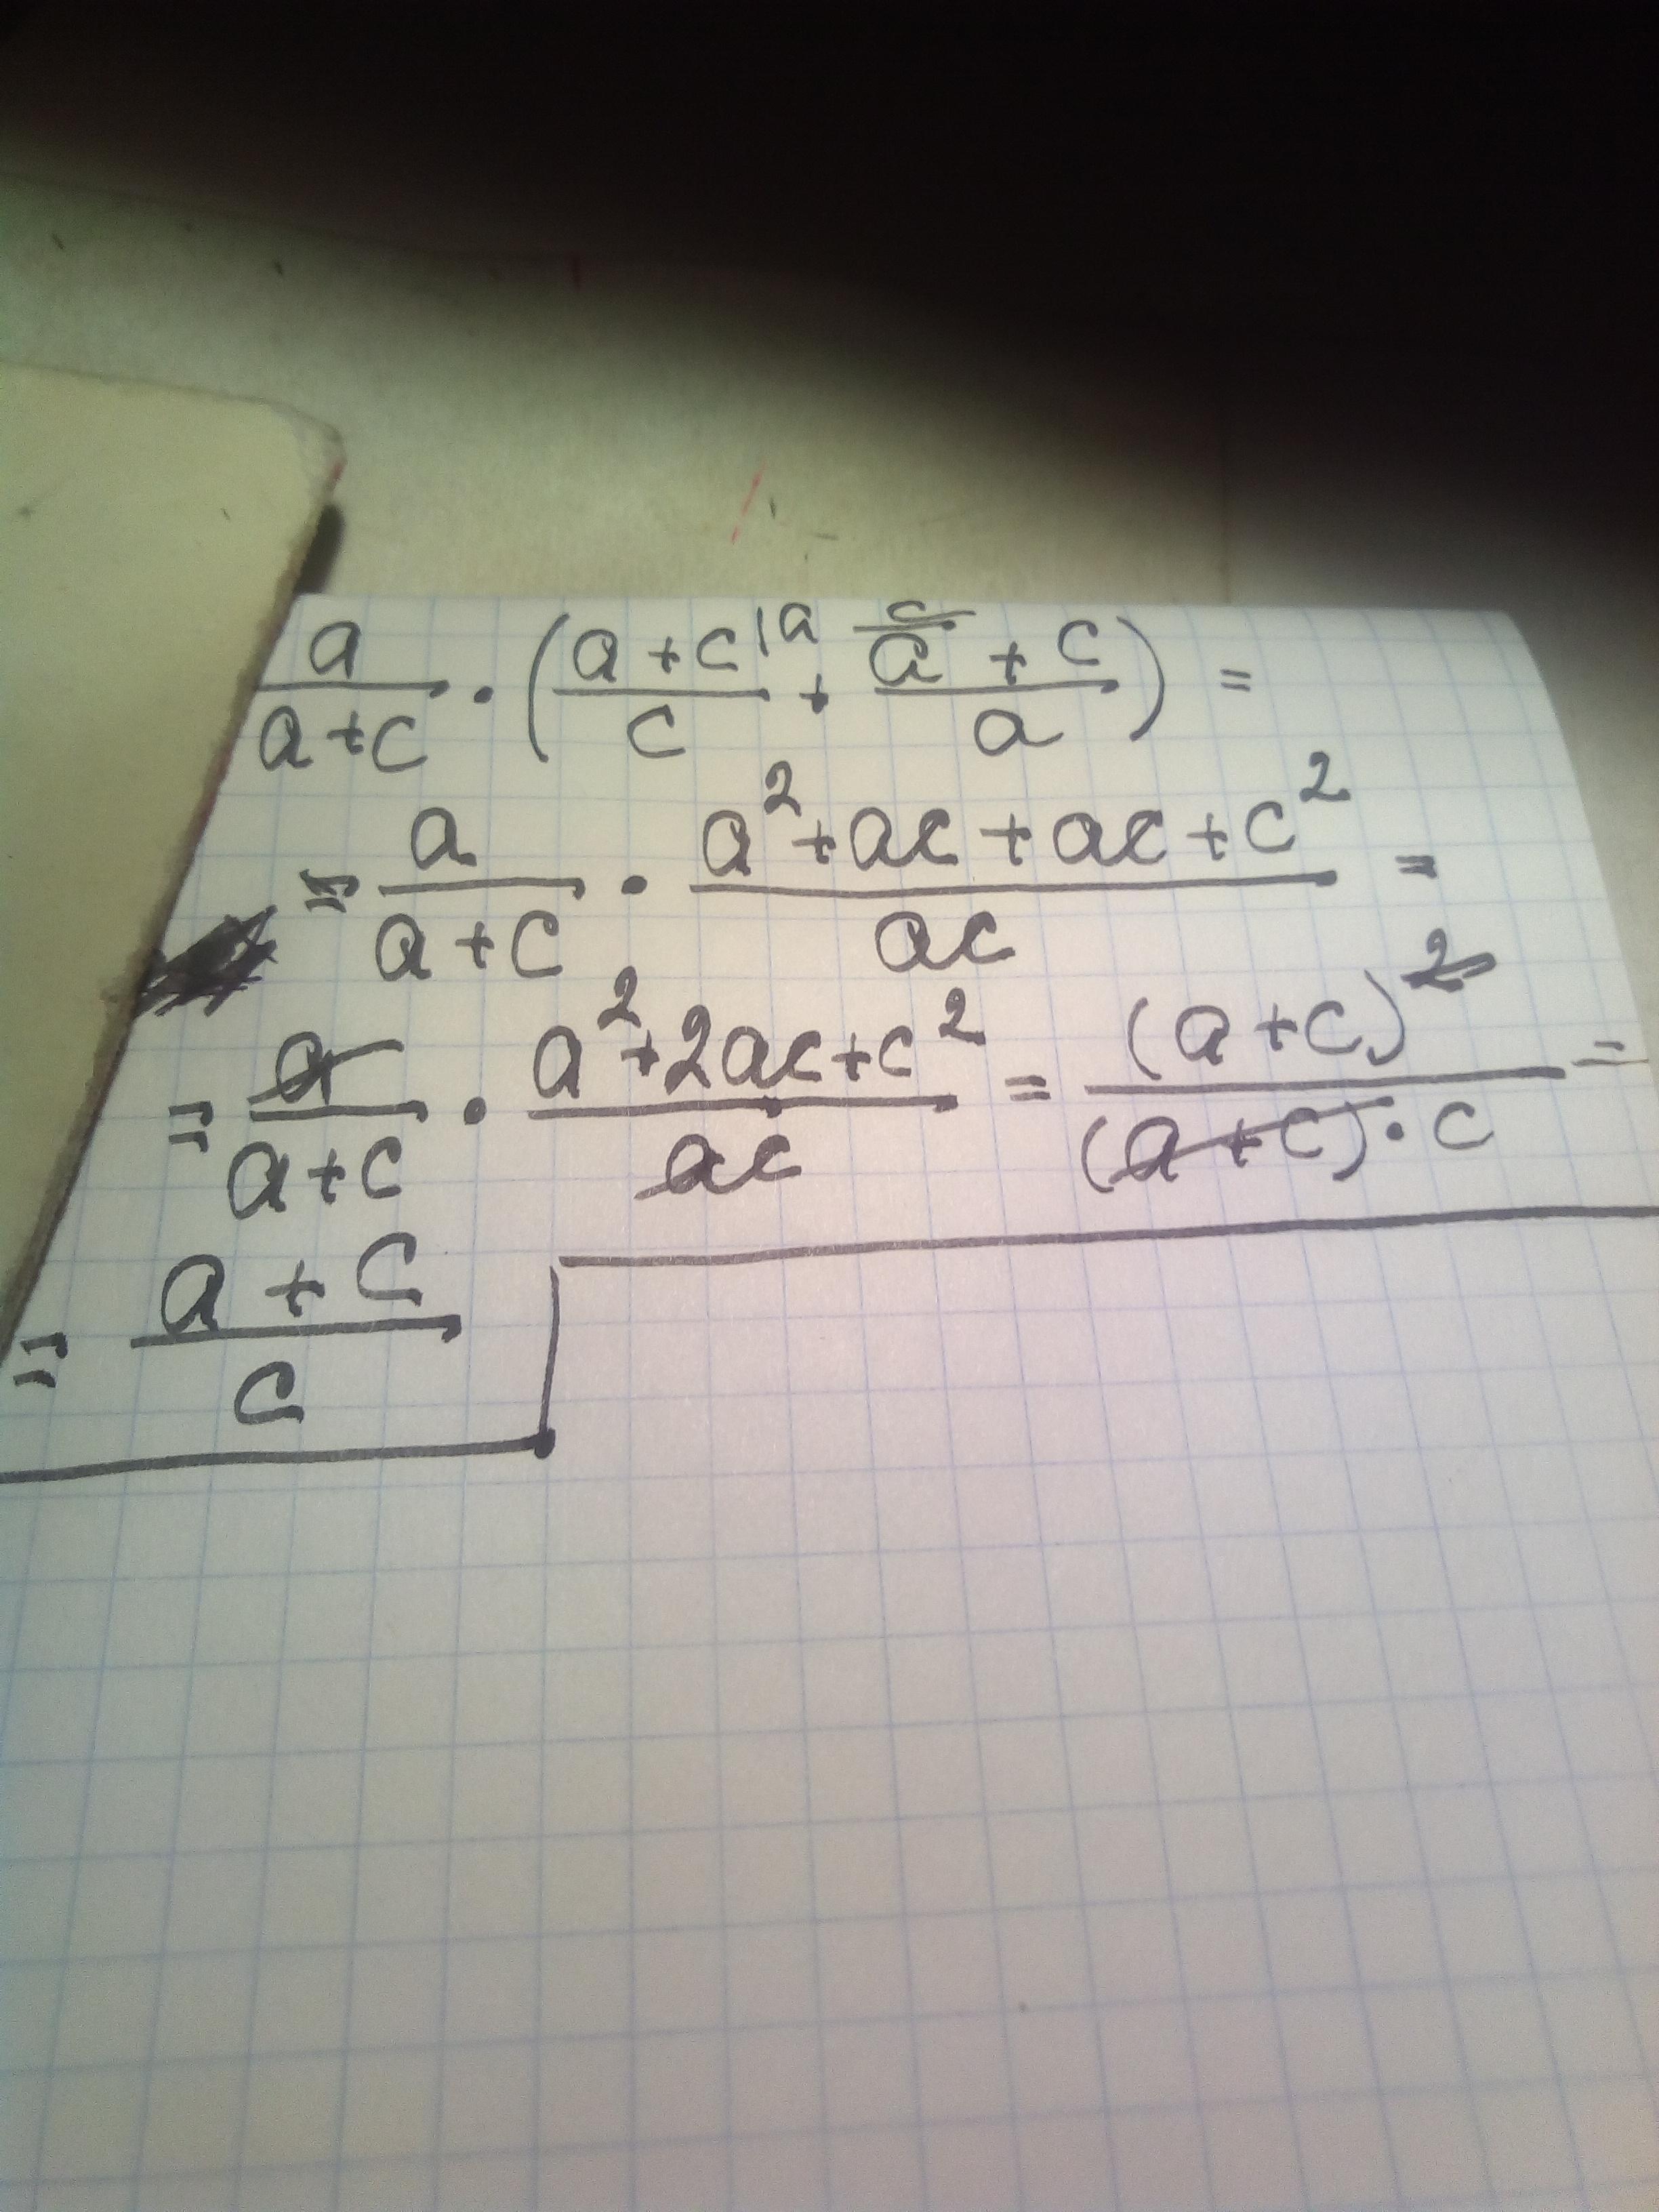 a/(a+c) · ((a+c)/c |a + c (a+c)/a) =
= a/(a+c) · (a²+ac+ac+c²)/(ac) =
= a/(a+c) · (a²+2ac+c²)/(ac) = (a+c)²/((a+c)·c) =
= (a+c)/c